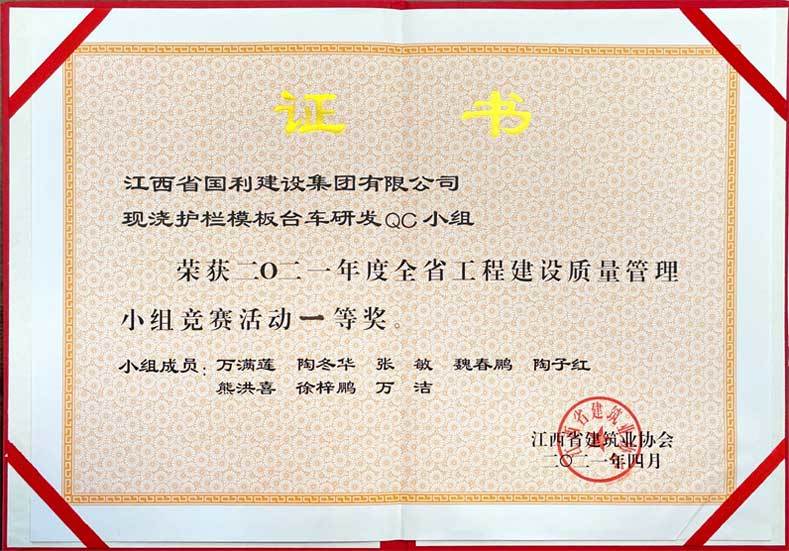 证 书
江西省国利建设集团有限公司
现浇护栏模板台车研发QC小组
荣获二〇二一年度全省工程建设质量管理
小组竞赛活动一等奖。
小组成员：万满莲 陶冬华 张 敏 魏春鹏 陶子红
熊洪喜 徐梓鹏 万 洁
江西省建筑业协会
江西省建筑业协会
二〇二一年四月